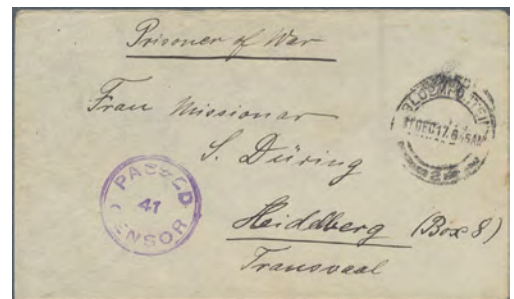 Prisoner of War
Frau Missionar
S. Düring
Heidelberg (Box 8)
Transvaal
PASSED
41
CENSOR
BLOEMFONTEIN
11 DEC 17. 6 45AM